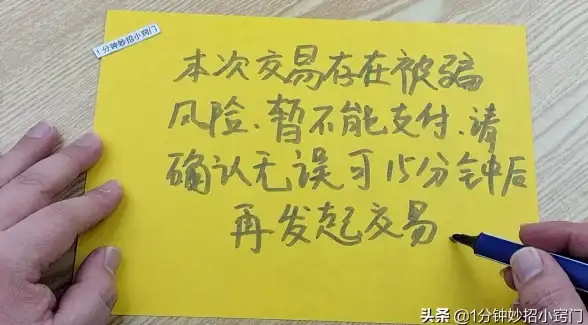 1分钟妙招小窍门
本次交易存在被骗
风险、暂不能支付、请
确认无误可15分钟后
再发起交易
头条 @1分钟妙招小窍门